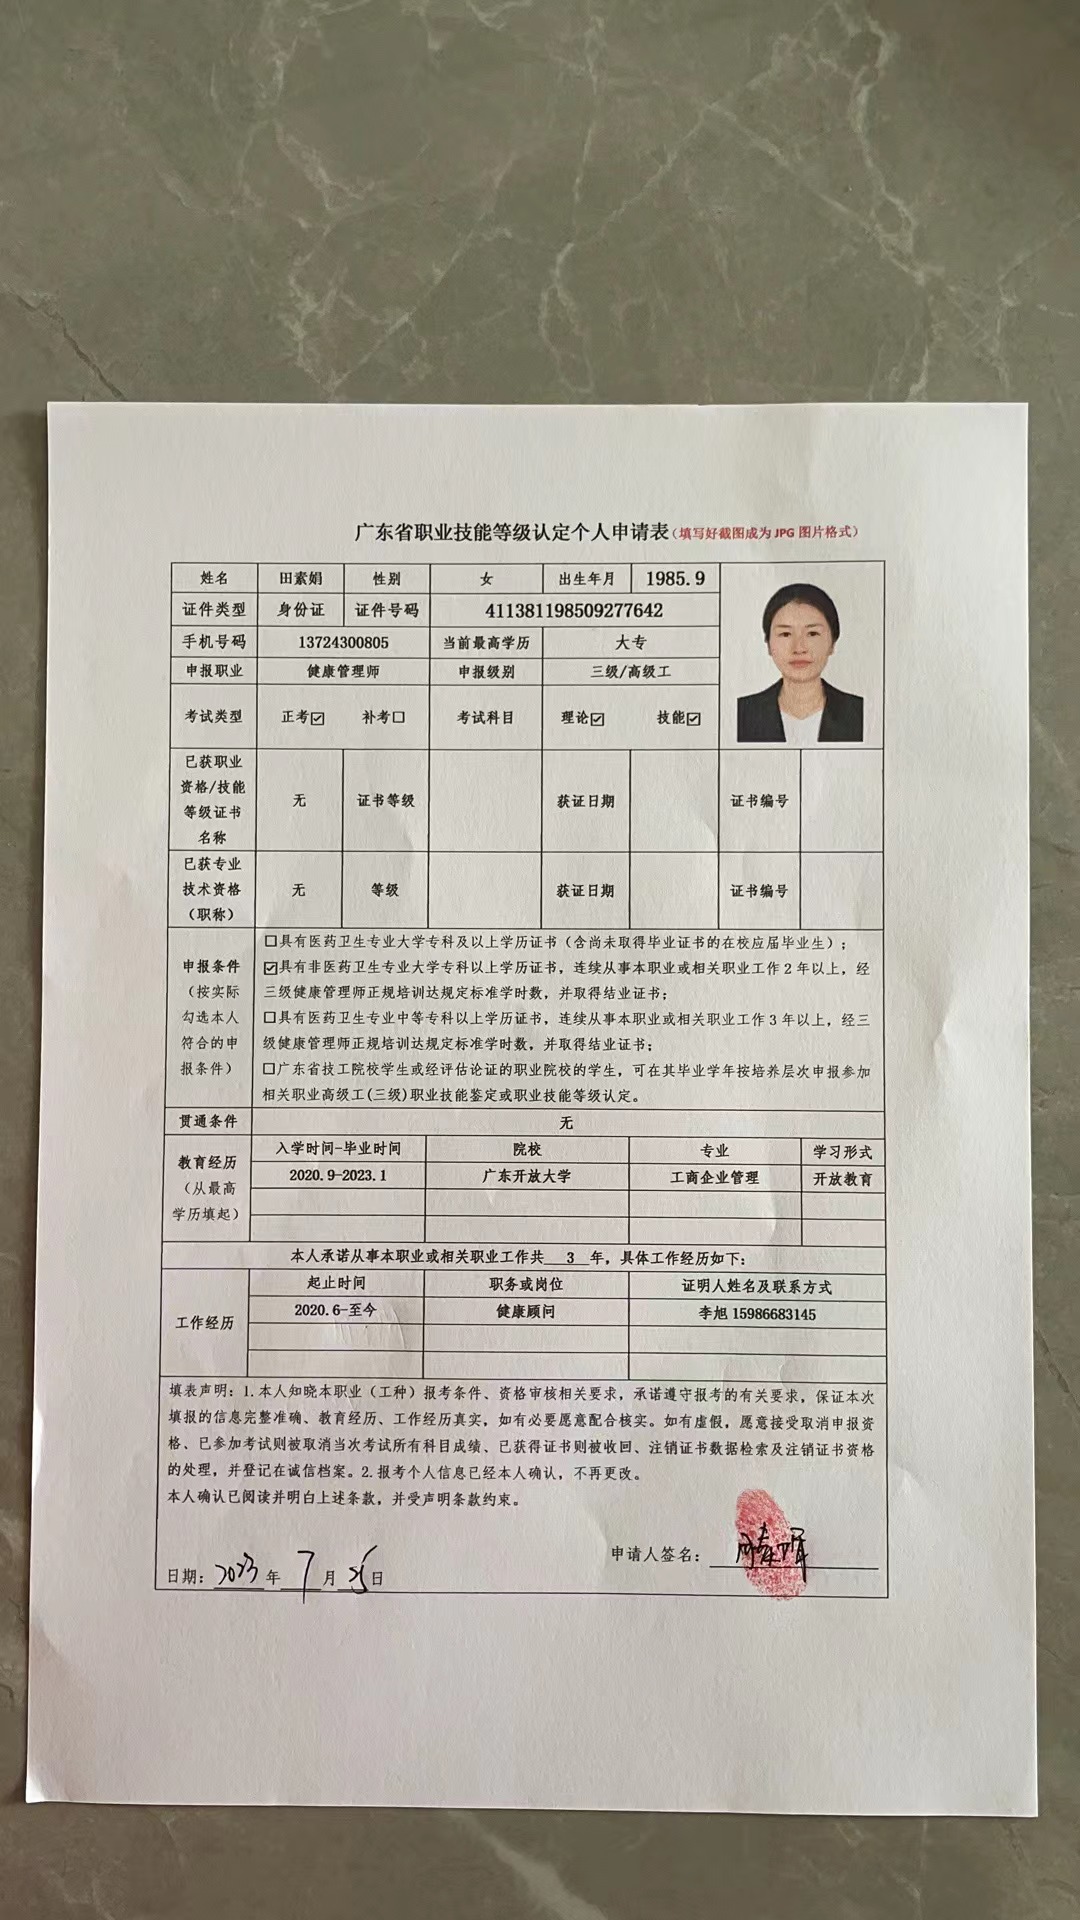 广东省职业技能等级认定个人申请表(填写好截图成为 JPG 图片格式)
姓名 田素娟 性别 女 出生年月 1985.9
证件类型 身份证 证件号码 411381198509277642
手机号码 13724300805 当前最高学历 大专
申报职业 健康管理师 申报级别 三级/高级工
考试类型 正考☑ 补考☐ 考试科目 理论☑ 技能☑
已获职业
资格/技能
等级证书
名称
无 证书等级 获证日期 证书编号
已获专业
技术资格
（职称）
无 等级 获证日期 证书编号
申报条件
（按实际
勾选本人
符合的申
报条件）
☐具有医药卫生专业大学专科及以上学历证书（含尚未取得毕业证书的在校应届毕业生）；
☑具有非医药卫生专业大学专科以上学历证书，连续从事本职业或相关职业工作 2 年以上，经
三级健康管理师正规培训达规定标准学时数，并取得结业证书；
☐具有医药卫生专业中等专科以上学历证书，连续从事本职业或相关职业工作 3 年以上，经三
级健康管理师正规培训达规定标准学时数，并取得结业证书；
☐广东省技工院校学生或经评估论证的职业院校的学生，可在其毕业学年按培养层次申报参加
相关职业高级工(三级)职业技能鉴定或职业技能等级认定。
贯通条件 无
教育经历
（从最高
学历填起）
入学时间-毕业时间 院校 专业 学习形式
2020.9-2023.1 广东开放大学 工商企业管理 开放教育
本人承诺从事本职业或相关职业工作共 3 年，具体工作经历如下：
工作经历
起止时间 职务或岗位 证明人姓名及联系方式
2020.6-至今 健康顾问 李旭 15986683145
填表声明：1.本人知晓本职业（工种）报考条件、资格审核相关要求，承诺遵守报考的有关要求，保证本次
填报的信息完整准确、教育经历、工作经历真实，如有必要愿意配合核实。如有虚假，愿意接受取消申报资
格、已参加考试则被取消当次考试所有科目成绩、已获得证书则被收回、注销证书数据检索及注销证书资格
的处理，并登记在诚信档案。2.报考个人信息已经本人确认，不再更改。
本人确认已阅读并明白上述条款，并受声明条款约束。
申请人签名：田素娟
日期：2023 年 7 月 25 日